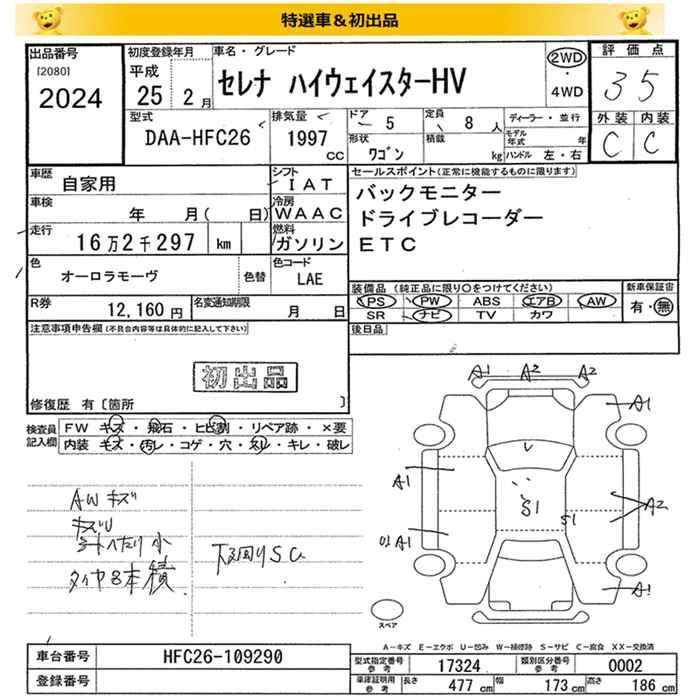 特選車＆初出品
出品番号
[2080]
2024
初度登録年月
平成
25 2月
車名・グレード
セレナ ハイウェイスターHV
2WD
・
4WD
評価点
3 5
外装 内装
C C
型式
DAA-HFC26
排気量
1997
cc
ドア
5
定員
8人
形状
ワゴン
積載
kg
ディーラー・並行
モデル年式 年
ハンドル 左・右
車歴
自家用
シフト
IAT
車検
年 月( 日)
冷房
WAAC
走行
16万2千297 km
燃料
ガソリン
色
オーロラモーヴ
色替
色コード
LAE
R券
12,160円
名変通知期限
月 日
セールスポイント(正常に機能するものに限ります)
バックモニター
ドライブレコーダー
ETC
装備品 (純正品に限り○をつけてください)
PS PW ABS エアB AW
SR ナビ TV カワ
新車保証書
有・無
後日品
注意事項申告欄(不具合内容等は具体的に記入して下さい)
初出品
修復歴 有〔箇所 〕
検査員記入欄
FW キズ・飛石・ヒビ割・リペア跡・×要
内装 キズ・汚レ・コゲ・穴・スレ・キレ・破レ
AWキズ
キズU
シートへたり小
タイヤ8本積
下廻りSC
A1 A2 A2
A1
A1
S1
S1
A2
U1 A1
A1
スペア
A－キズ E－エクボ U－凹み W－補修跡 S－サビ C－腐食 XX－交換済
車台番号
HFC26-109290
登録番号
型式指定番号
参考
17324
類別区分番号
参考
0002
車庫証明用
参考
長さ
477cm
幅
173cm
高さ
186cm